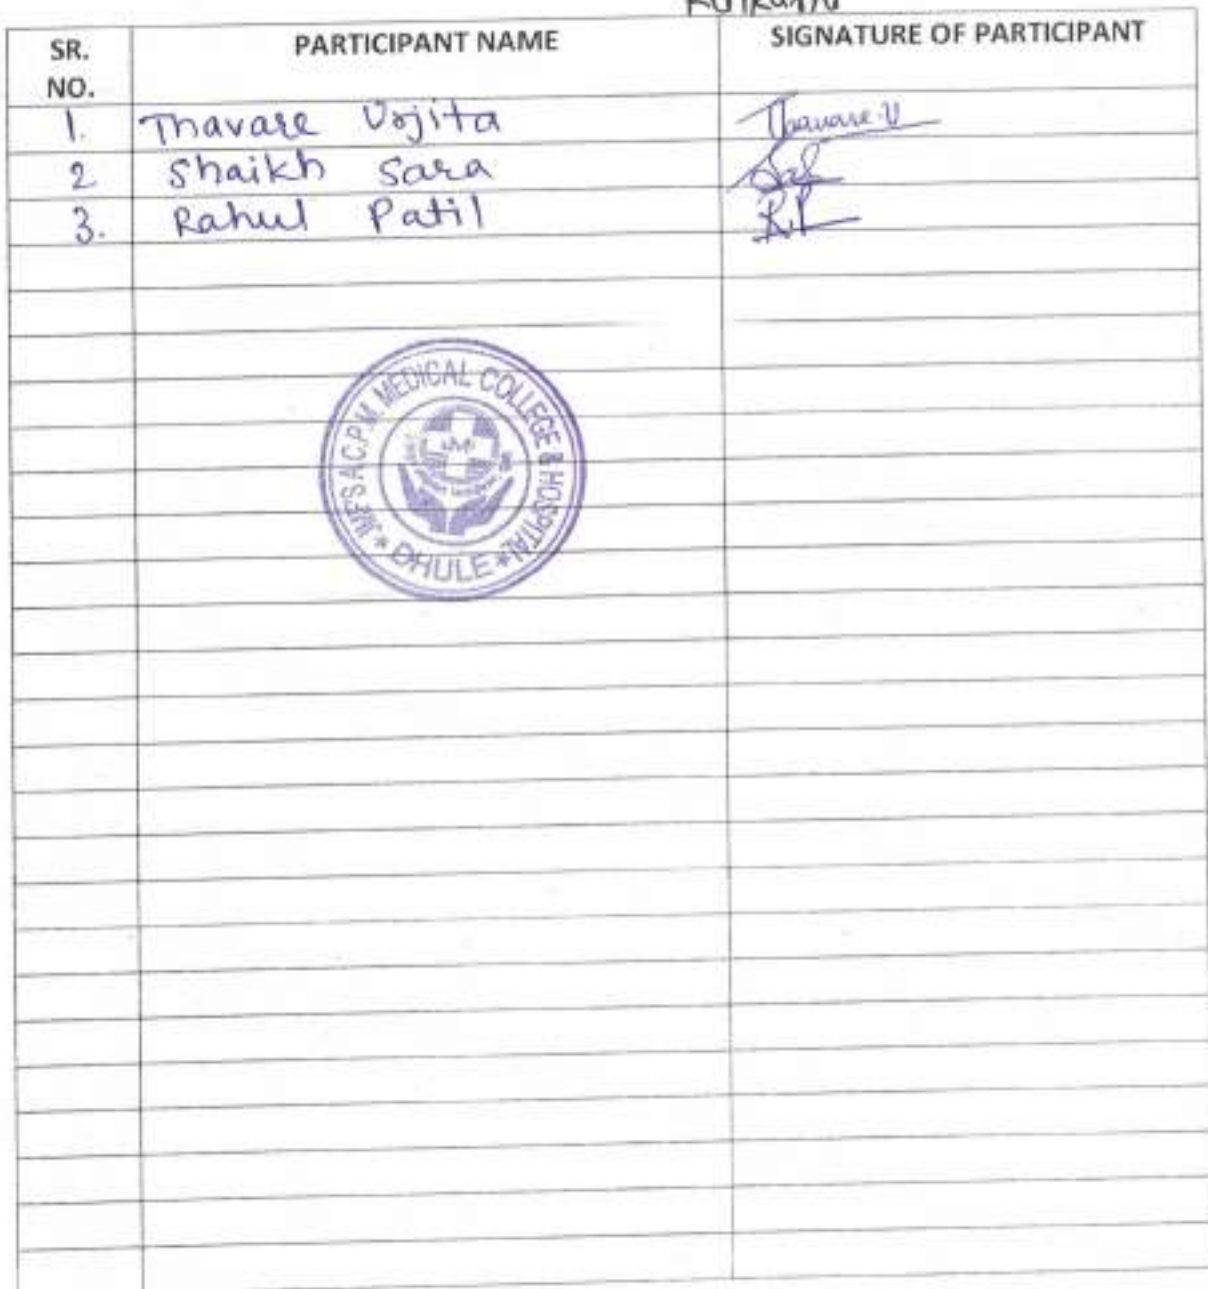 SR. NO. PARTICIPANT NAME SIGNATURE OF PARTICIPANT
1. Thavare Urjita Thavare.U
2 Shaikh Sara
3. Rahul Patil R.P
JMF'S A.C.P.M. MEDICAL COLLEGE & HOSPITAL
* DHULE *